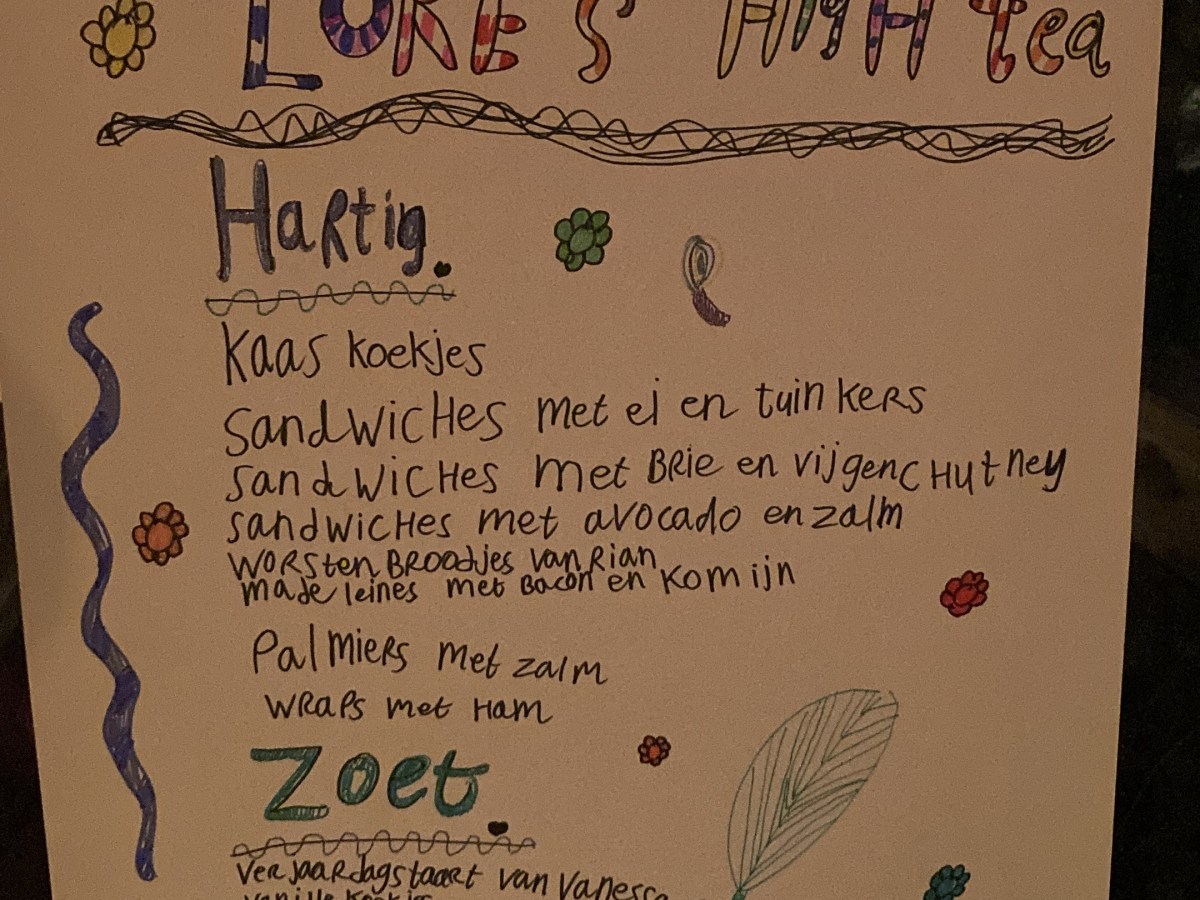 LORE'S HigH tea
HaRtig.
Kaas koekjes
SandwicHes met ei en tuinkers
SandwicHes met BRie en vijgencHutney
SandwicHes met avocado en zalm
WORSten BROOdjes van Rian
madeleines met Bacon en Komijn
PalmieRs met zalm
WRaps met Ham
Zoet.
VerjaaRdagstaaRt van Vanessa